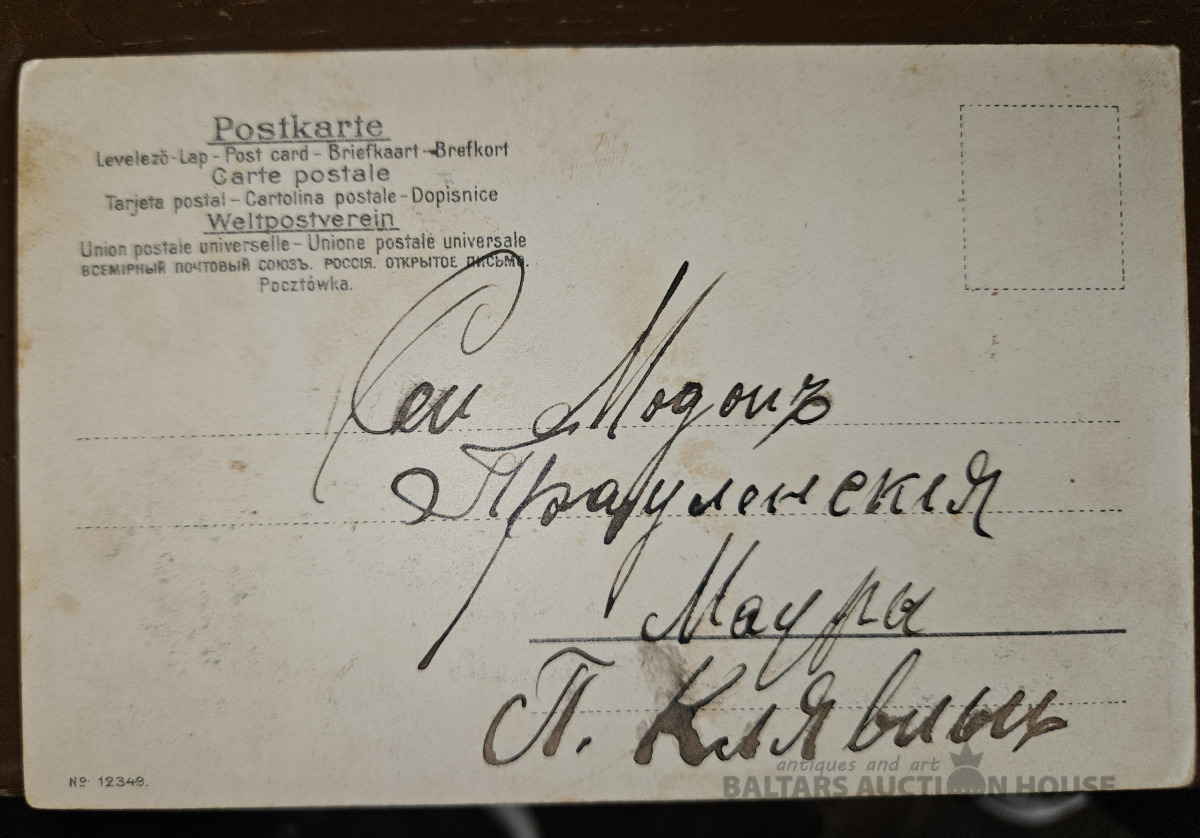 Postkarte
Levelező-Lap - Post card - Briefkaart - Brefkort
Carte postale
Tarjeta postal - Cartolina postale - Dopisnice
Weltpostverein
Union postale universelle - Unione postale universale
ВСЕМІРНЫЙ ПОЧТОВЫЙ СОЮЗЪ. РОССІЯ. ОТКРЫТОЕ ПИСЬМО.
Pocztówka.
Модонъ
Прауленскія
Мауры
П. Клявинь
№ 12349.
antiques and art
BALTARS AUCTION HOUSE